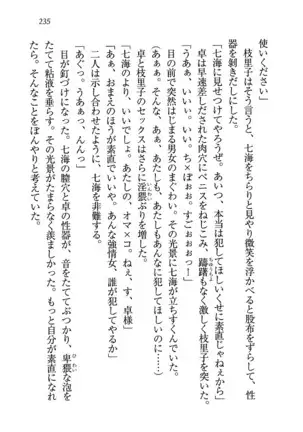 235
使いください」
枝里子はそう言うと、七海をちらりと見やり微笑を浮かべると股布をずらして、性
器を剝きだしにした。
「七海に見せつけてやろうぜ。あいつ、本当は犯してほしいくせに素直じゃねぇから」
卓は早速差しだされた肉穴にペニスをねじこみ、躊躇もなく激しく枝里子を突いた。
「うあぁ、いいぃ。いい。ち×ぽぉ。すごぉぉぉっ!」
目の前で突然はじまる男女のまぐわい。その光景に七海が立ちすくんだ。
(な、なんで、なんでよ。あたしも、あたしもあんなふうに犯してほしいのに……)
卓と枝里子のセックスはさらに淫猥ぶりを増した。
「七海のより、いいでしょ。あたしの、オマ×コ。ねぇ、す、卓様」
「あぁ、おまえのほうが素直でいいや。あんな強情女、誰が犯してやるか」
二人は示し合わせたように、七海を非難する。
「あぐっ。うあぁっ、んんっ」
目が釘づけになった。七海の膣穴と卓の性器が、音をたててぶつかり、卑猥な泡を
たてて粘液を垂らす。その光景がたまらなく羨ましかった。もっと自分が素直になれ
たら。そんなことをぼんやりと考えていた。